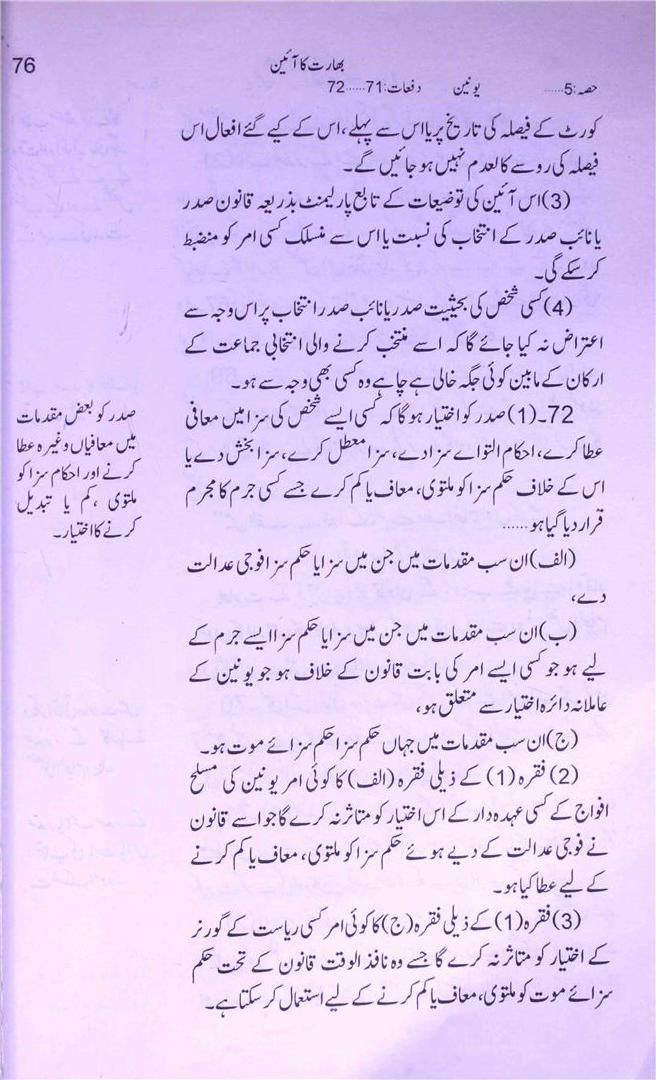 76
بھارت کا آئین
حصہ:5...... یونین دفعات:71......72
کورٹ کے فیصلہ کی تاریخ پر یا اس سے پہلے، اس کے کیے گئے افعال اس
فیصلہ کی رو سے کالعدم نہیں ہو جائیں گے۔
(3) اس آئین کی توضیعات کے تابع پارلیمنٹ بذریعہ قانون صدر
یا نائب صدر کے انتخاب کی نسبت یا اس سے منسلک کسی امر کو منضبط
کر سکے گی۔
(4) کسی شخص کی بحیثیت صدر یا نائب صدر انتخاب پر اس وجہ سے
اعتراض نہ کیا جائے گا کہ اسے منتخب کرنے والی انتخابی جماعت کے
ارکان کے مابین کوئی جگہ خالی ہے چاہے وہ کسی بھی وجہ سے ہو۔
72۔(1) صدر کو اختیار ہوگا کہ کسی ایسے شخص کی سزا میں معافی
عطا کرے، احکام التوائے سزا دے، سزا معطل کرے، سزا بخش دے یا
اس کے خلاف حکم سزا کو ملتوی، معاف یا کم کرے جسے کسی جرم کا مجرم
قرار دیا گیا ہو......
صدر کو بعض مقدمات
میں معافیاں وغیرہ عطا
کرنے اور احکام سزا کو
ملتوی، کم یا تبدیل
کرنے کا اختیار۔
(الف) ان سب مقدمات میں جن میں سزا یا حکم سزا فوجی عدالت
دے،
(ب) ان سب مقدمات میں جن میں سزا یا حکم سزا ایسے جرم کے
لیے ہو جو کسی ایسے امر کی بابت قانون کے خلاف ہو جو یونین کے
عاملانہ دائرہ اختیار سے متعلق ہو،
(ج) ان سب مقدمات میں جہاں حکم سزا حکم سزائے موت ہو۔
(2) فقرہ (1) کے ذیلی فقرہ (الف) کا کوئی امر یونین کی مسلح
افواج کے کسی عہدہ دار کے اس اختیار کو متاثر نہ کرے گا جو اسے قانون
نے فوجی عدالت کے دیے ہوئے حکم سزا کو ملتوی، معاف یا کم کرنے
کے لیے عطا کیا ہو۔
(3) فقرہ (1) کے ذیلی فقرہ (ج) کا کوئی امر کسی ریاست کے گورنر
کے اختیار کو متاثر نہ کرے گا جسے وہ نافذ الوقت قانون کے تحت حکم
سزائے موت کو ملتوی، معاف یا کم کرنے کے لیے استعمال کر سکتا ہے۔